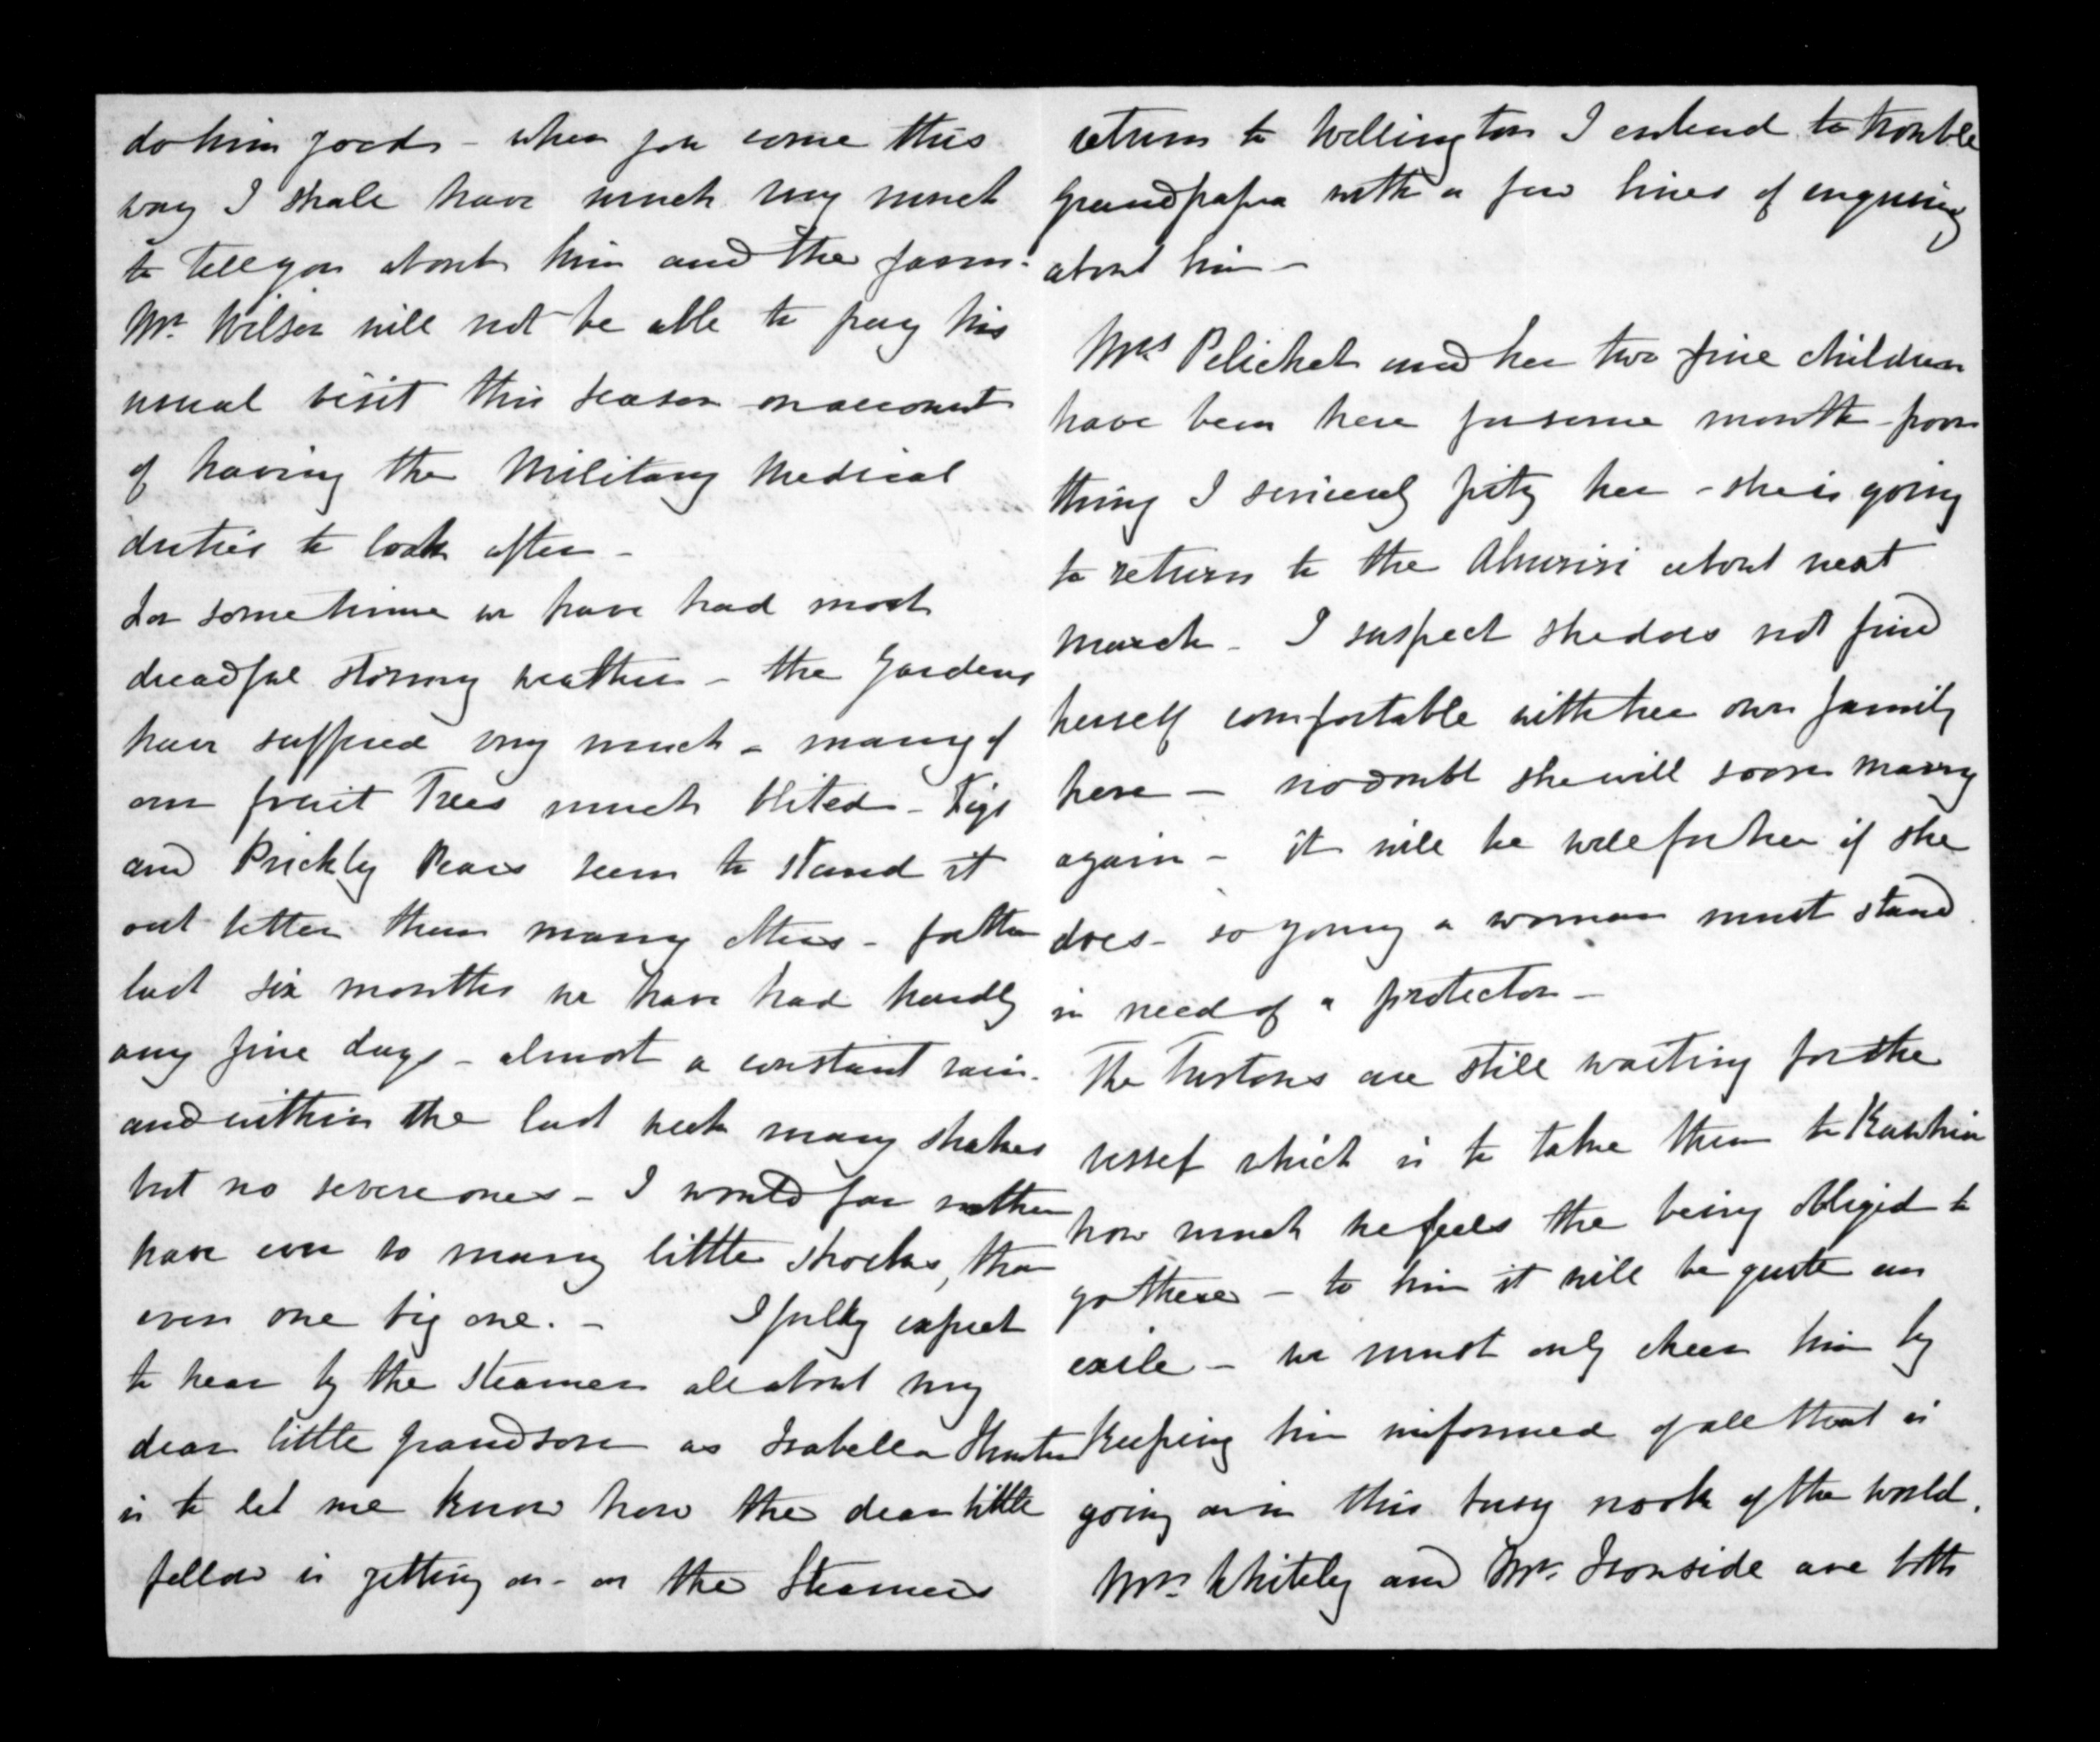 do him good - when you come this
way I shall have much very much
to tell you about him and the farm.
Mr. Wilson will not be able to pay his
usual visit this season on account
of having the Military Medical
duties to look after -
For sometime we have had most
dreadful stormy weather - the Gardens
have suffered very much - many of
our fruit Trees much blited - Figs
and Prickly Pears seem to stand it
out better than many others - for the
last six months we have had hardly
any fine days - almost a constant rain.
and within the last week many shakes
but no severe ones - I would far rather
have ever so many little shocks, than
even one big one. - I fully expect
to hear by the Steamer all about my
dear little grandson as Isabella
is to let me know how the dear little
fellow is getting on - on the Steamers
return to Wellington I entend to trouble
Grandpapa with a few lines of enquiry
about him -
Mrs Pelichet and her two fine children
have been here for some month - poor
thing I sincerely pity her - she is going
to return to the Ahuriri about next
March - I suspect she does not find
herself comfortable with her own family
here - no doubt she will soon marry
again - it will be well for her if she
does - so young a woman must stand
in need of a protector -
The Turtons are still waiting for the
vessel which is to take them to Kawhia
how much he feels the being obliged to
go there - to him it will be quite an
exile - we must only cheer him by
Keeping him informed of all that is
going on in this busy nook of the world.
Mrs. Whiteley and Mr. Ironside are both